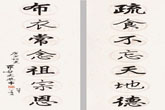 疏食不忘天地德
布衣常念祖宗恩